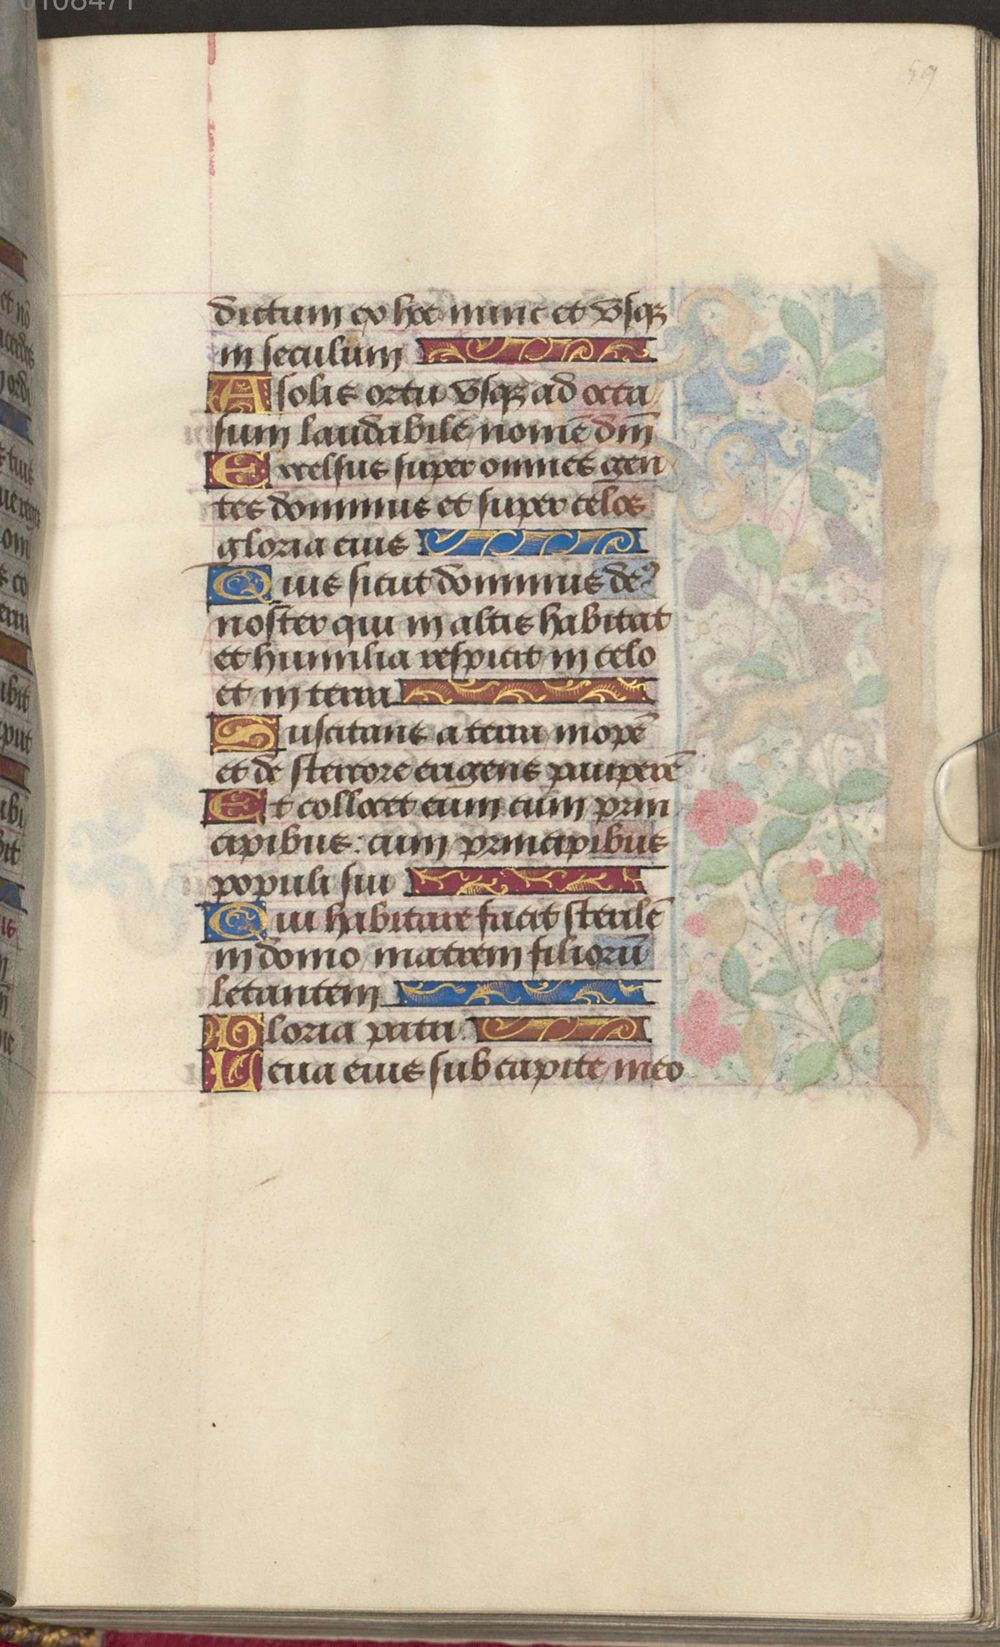 0108471
59
dictum ex hoc nunc et vsqz
in seculum
A solis ortu vsqz ad occa
sum laudabile nomē dm̄
Excelsus super omnes gen
tes dominus et super celos
gloria eius
Quis sicut dominus deꝰ
noster qui in altis habitat
et humilia respicit in celo
et in terra
Suscitans a terra inopē
et de stercore erigens pauperē
Et collocet eum cum prin
cipibus: cum principibus
populi sui
Qui habitare facit sterilē
in domo matrem filiorū
letantem
Gloria patri.
Leua eius sub capite meo